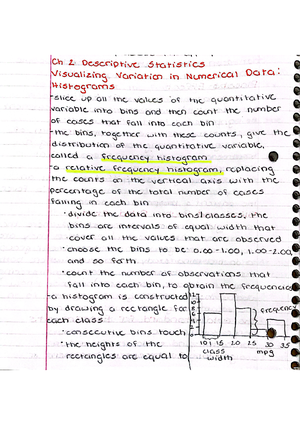 Ch 2 Descriptive Statistics
Visualizing Variation in Numerical Data:
Histograms
-slice up all the values of the quantitative
variable into bins and then count the number
of cases that fall into each bin
-the bins, together with these counts, give the
distribution of the quantitative variable,
called a frequency histogram
-a relative frequency histogram, replacing
the counts on the vertical axis with the
percentage of the total number of cases
falling in each bin
·divide the data into bins/classes, the
bins are intervals of equal width that
cover all the values that are observed
·choose the bins to be 0.00-1.00, 1.00-2.00,
and so forth
·count the number of observations that
fall into each bin, to obtain the frequencies
-a histogram is constructed
by drawing a rectangle for
each class
·consecutive bins touch
·the heights of the
rectangles are equal to
frequency
10 15 20 25 30 35
class
width
mpg